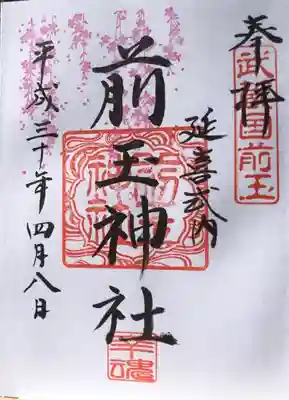 奉拝
武蔵国前玉
延喜式内
前玉神社
平成三十年四月八日
幸魂